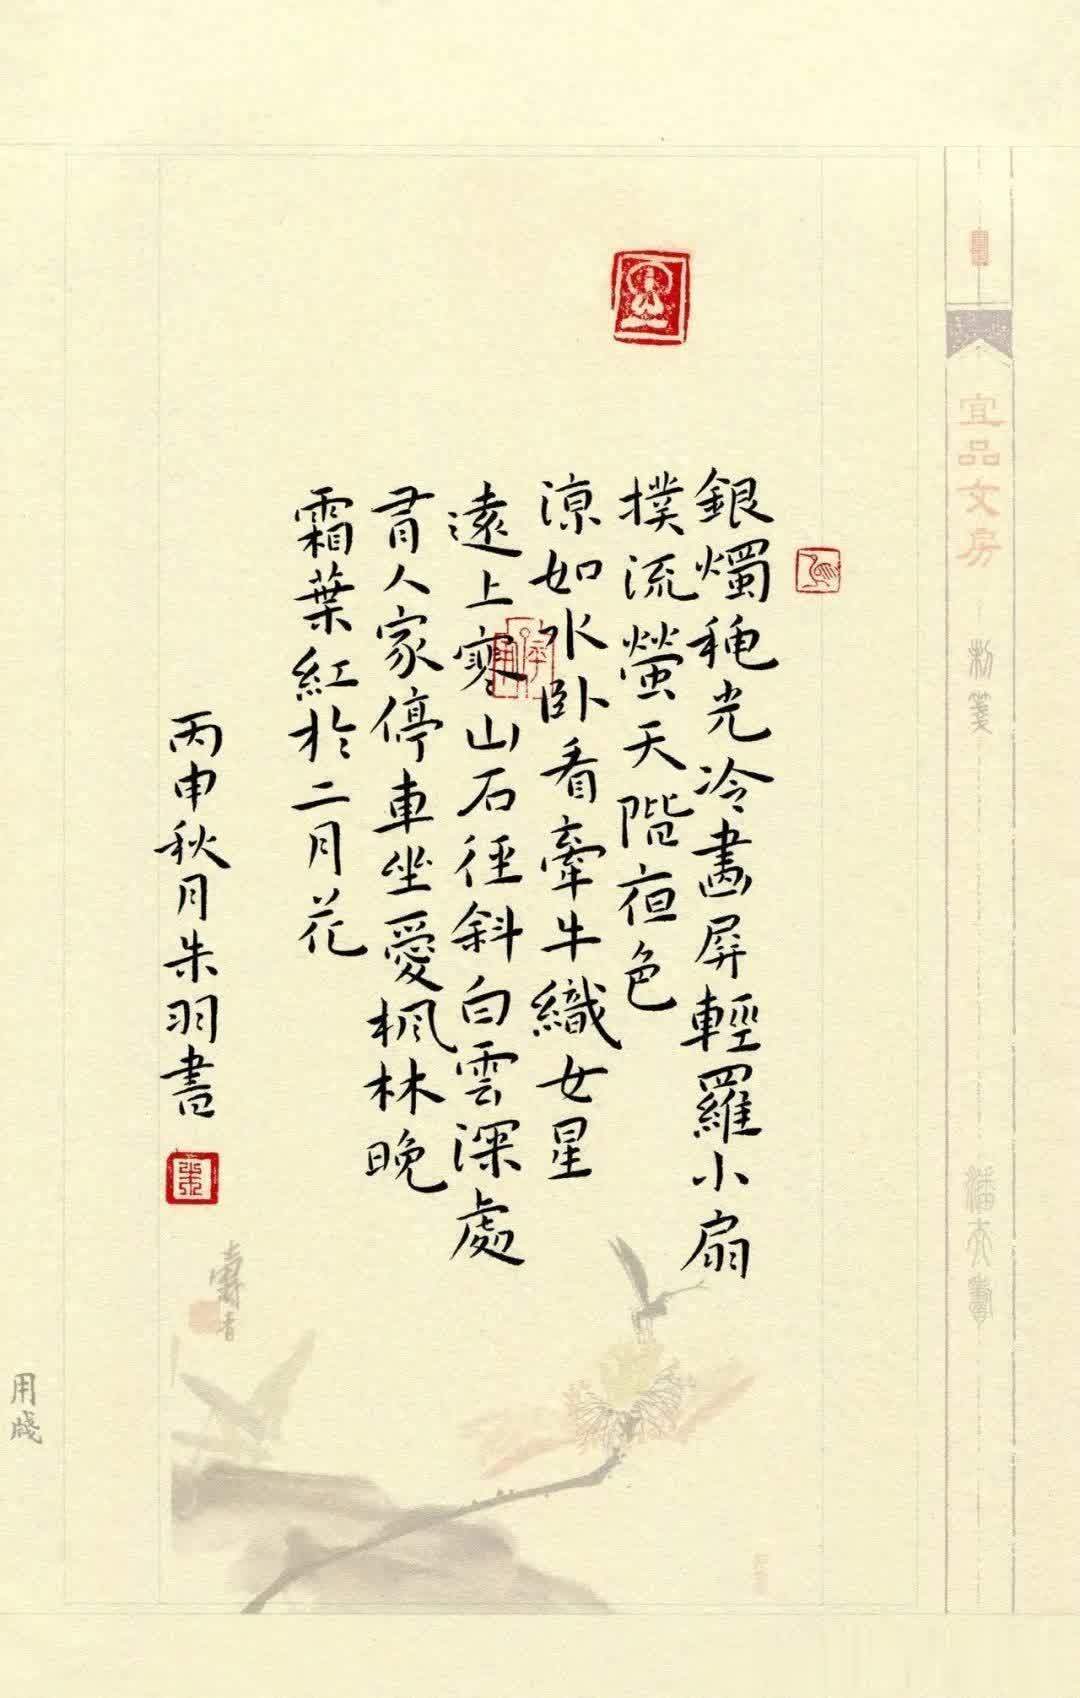 宜品文房
銀燭穐光冷畫屏輕羅小扇
撲流螢天階夜色
涼如水卧看牽牛織女星
遠上寒山石徑斜白雲深處
有人家停車坐愛楓林晚
霜葉紅於二月花
丙申秋月朱羽書
朱
用牋